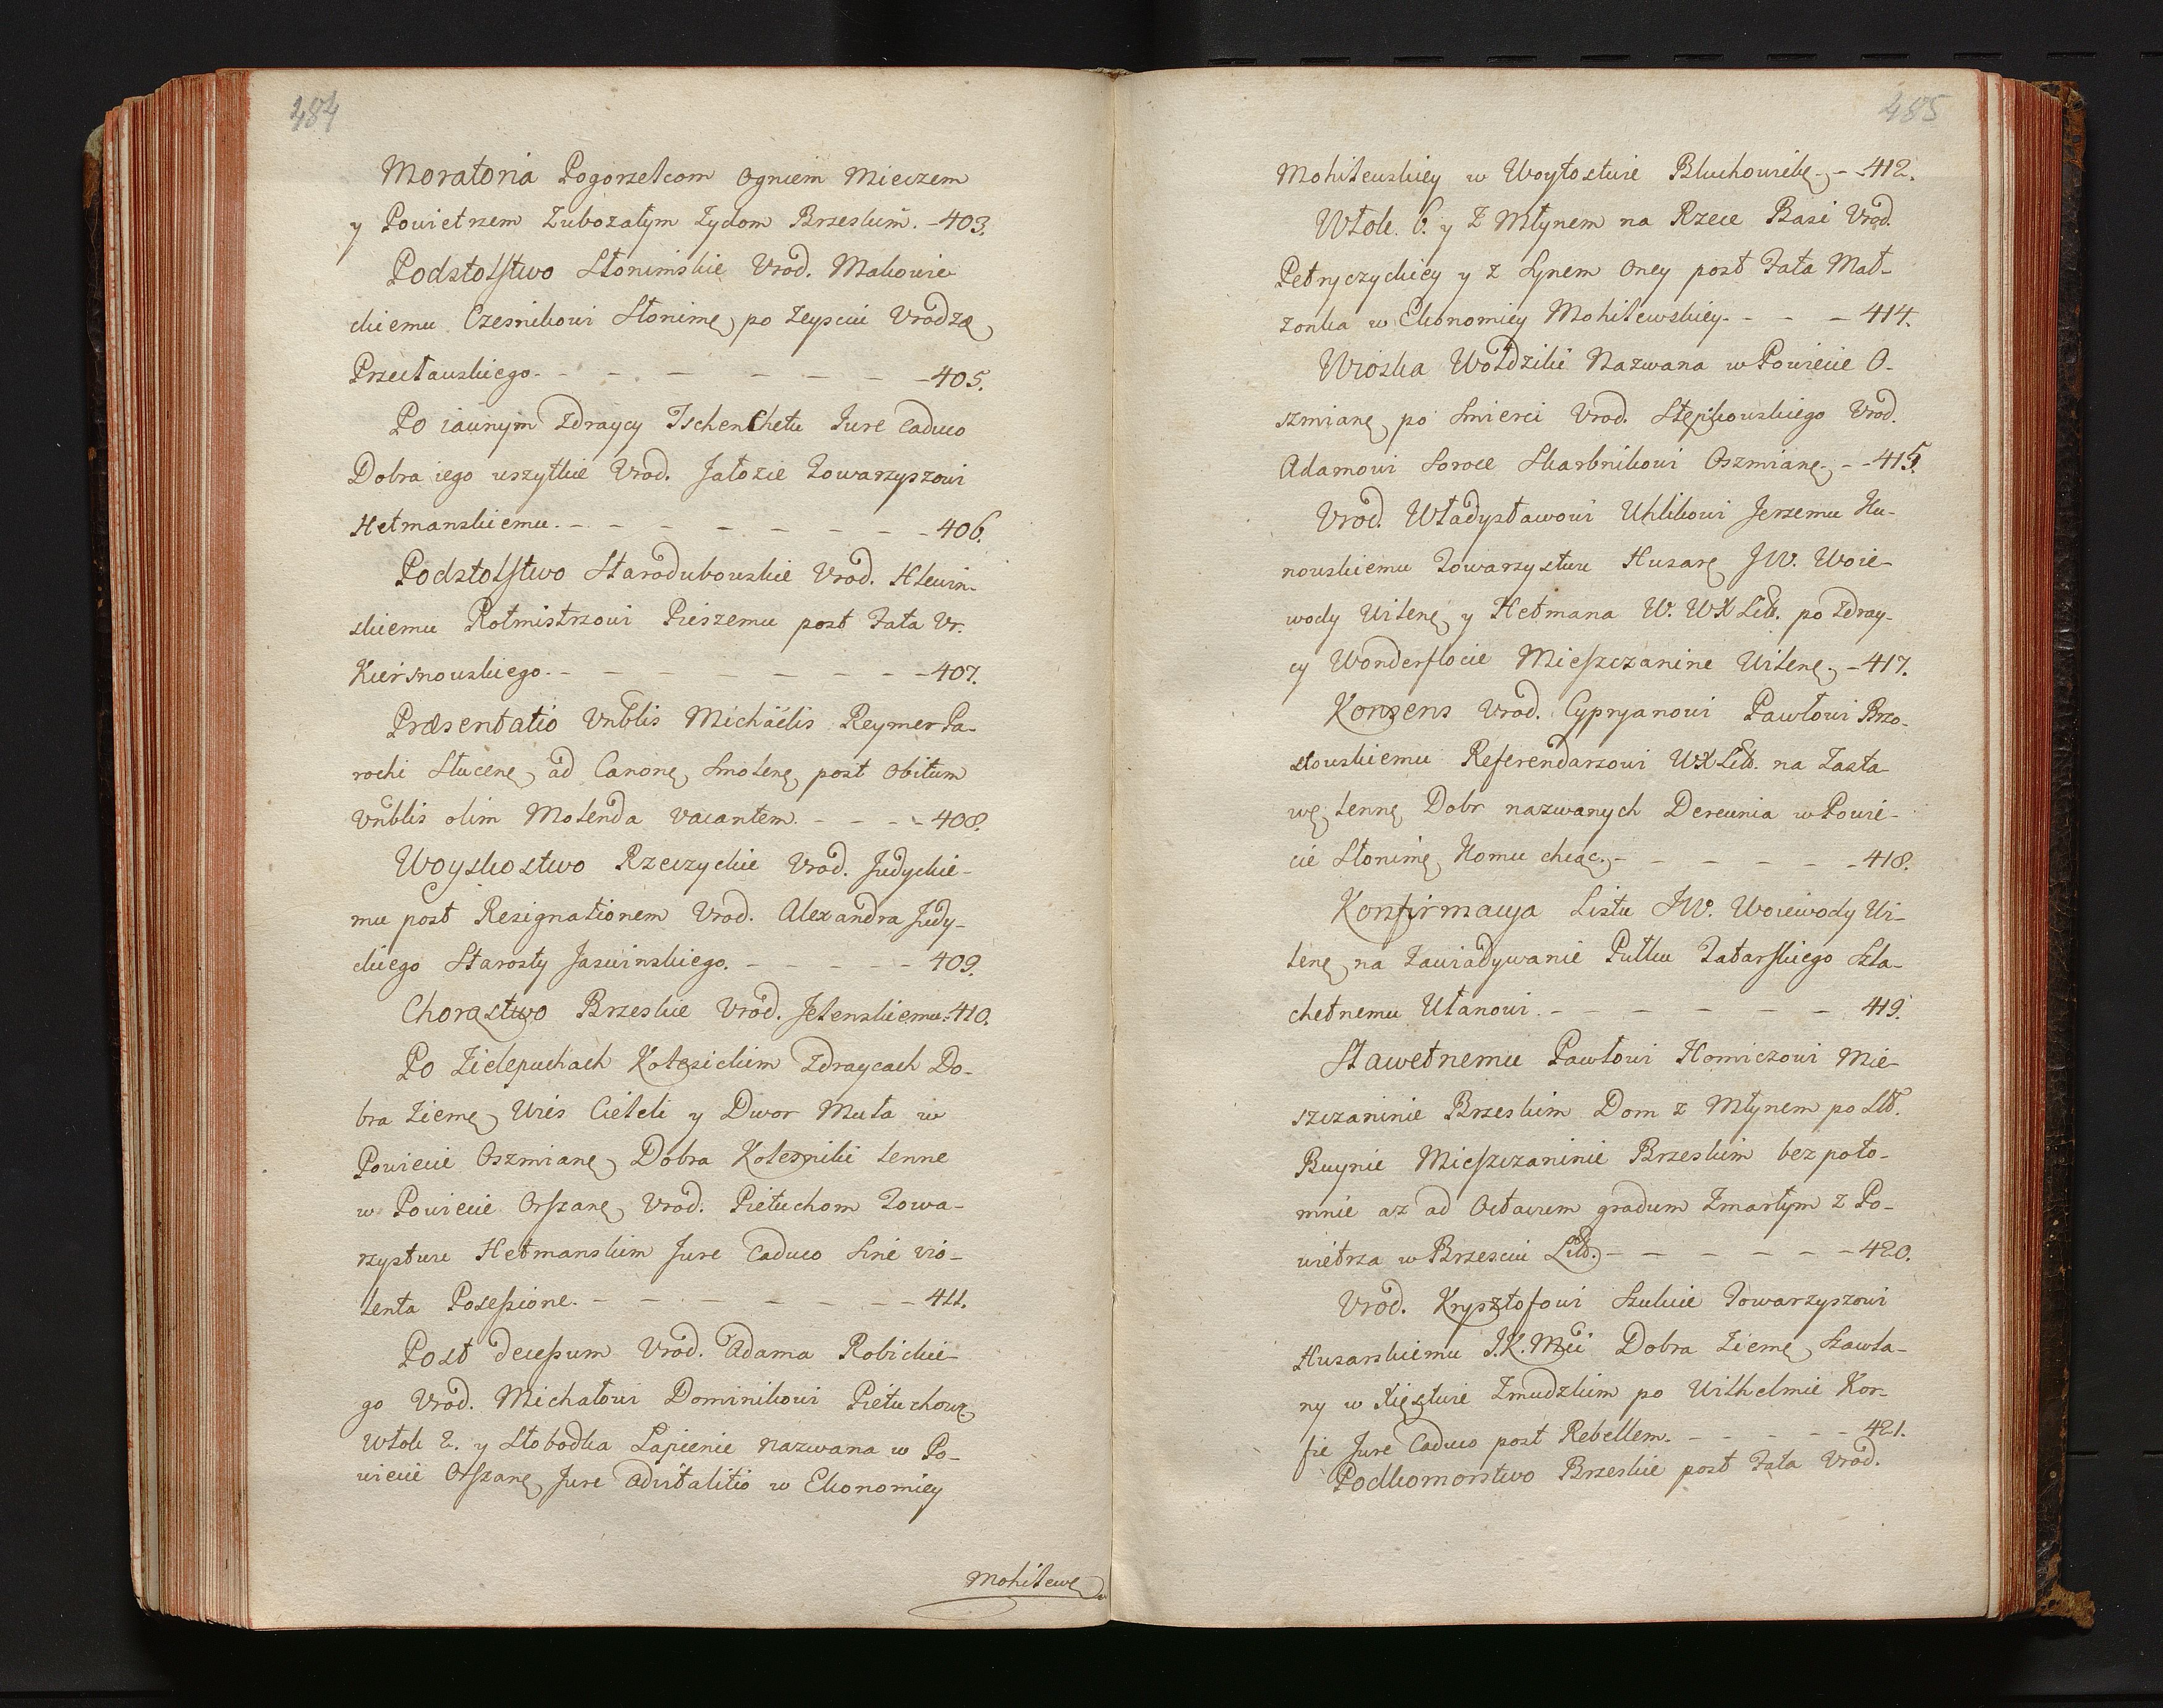 484
Moratoria Pogorzelcom Ogniem Mieczem
y Powietrzem Zubozałym Zydom Brzeskim. - 403.
Podstolstwo Słonimskie Vrod. Makowie
ckiemu Czesnikowi Słonimę po Zeysciu Vrodzę
Przecławskiego. - - - - - - 405.
Po iawnym Zdraycy Ischenchetu Jure Caduco
Dobra iego wszytkie Vrod. Jałozie Towarzyszowi
Hetmanskiemu. - - - - - - - 406.
Podstolstwo Starodubowskie Vrod. Hlewin-
skiemu Rotmistrzowi Pieszemu post Fata Vr.
Kiersnowskiego. - - - - - - - 407.
Præsentatio Vnblis Michäelis Reymer Pa-
rochi Slucenę ad Canonę Smolenę post Obitum
Vnblis olim Molenda vacantem. - - - - 408.
Woyskostwo Rzeczyckie Vrod. Judyckie-
mu post Resignationem Vrod. Alexandra Judy-
ckiego Starosty Jaswinskiego. - - - - - 409.
Chorąstwo Brzeskie Vrod. Jelenskiemu. 410.
Po Zielepuchach Kolesickim Zdraycach Do-
bra Ziemę Wies Cieleli y Dwor Muta w
Powiecie Oszmianę Dobra Kolesniki lenne
w Powiecie Orszanę Vrod. Pietuchom Towa-
rzystwu Hetmanskim Jure Caduco Sine vio-
lenta Posessione. - - - - - - - 411.
Post decessum Vrod. Adama Robickie-
go Vrod. Michałowi Dominikowi Pietuchowę
Włok 2. y Słobodka Łapienie nazwana w Po-
wiecie Orszanę Jure advitalitio w Ekonomiey
Mohilewę
485
Mohilewskiey w Woytostwie Bluchowikę - - 412.
Włok. 6. y Z Młynem na Rzece Basi Vrod.
Petryczyckiey y z Synem Oney post Fata Mał-
zonka w Ekonomiey Mohilewskiey. - - - 414.
Wioska Wołdziki Nazwana w Powiecie O-
szmianę po Smierci Vrod. Stępkowskiego Vrod.
Adamowi Soroce Skarbnikowi Oszmianę. - - 415.
Vrod. Władysławowi Uhlikowi Jerzemu Hu-
nowskiemu Towarzystwu Husarę JW. Woie-
wody Wilenę y Hetmana W. WX Litt. po Zdray-
cy Wonderflocie Mieszczanine Wilenę. - 417.
Konsens Vrod. Cypryanowi Pawłowi Brzo-
stowskiemu Referendarzowi WX Litt. na Zasta-
wę lennę Dobr nazwanych Derewnia w Powie-
cie Słonimę Komu chcąc. - - - - - - 418.
Konfirmacya Listu JW. Woiewody Wi-
lenę na Zawiadywanie Pułku Tatarskiego Szla-
chetnemu Ułanowi. - - - - - - - 419.
Sławetnemu Pawłowi Homiczowi Mie-
szczaninie Brzeskim Dom z Młynem po Sld.
Buynie Mieszczaninie Brzeskim bez poto-
mnie az ad Octavum gradum Zmarłym z Po-
wietrza w Brzesciu Litt. - - - - - - 420.
Vrod. Krysztofowi Szulcie Towarzyszowi
Husarskiemu J.K.Mci Dobra Ziemę Szawla-
ny w Xięstwie Zmudzkim po Wilhelmie Kor-
fie Jure Caduco post Rebellem. - - - - - 421.
Podkomorstwo Brzeskie post Fata Vrod.